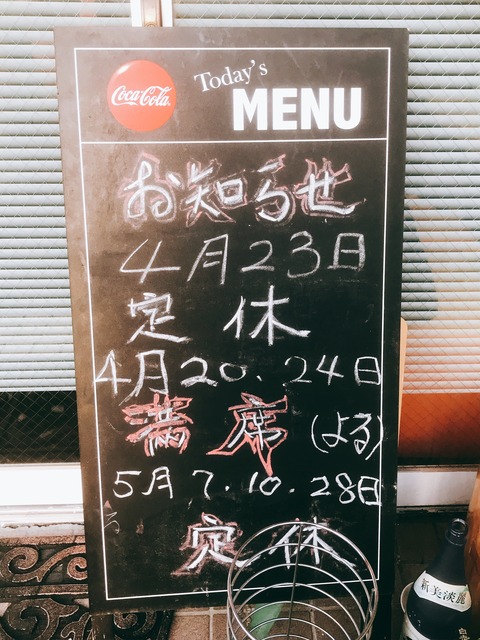 Coca-Cola
Today's
MENU
お知らせ
4月23日
定休
4月20.24日
満席(よる)
5月7.10.28日
定休
新美淡麗